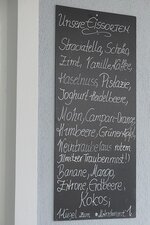 Unsere Eissorten
Stracciatella, Schoko,
Zimt, Vanille, Kaffee,
Haselnuss, Pistazie,
Joghurt-Heidelbeere,
Mohn, Campari-Orange,
Himbeere, Grüner Apfel,
Weintraube (aus rotem
Traubenmost!)
Banane, Mango,
Zitrone, Erdbeere,
Kokos,
1 Kugel zum